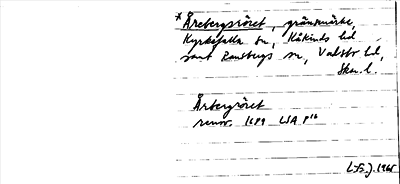 *Årebergsröret, gränsmärke,
Kyrkefalla sn, Kåkinds hd
samt Ransbergs sn, Valsbr hd,
Skar. l.
Årbergröret
renov. 1689 LSA P
L-fs. J. 1965